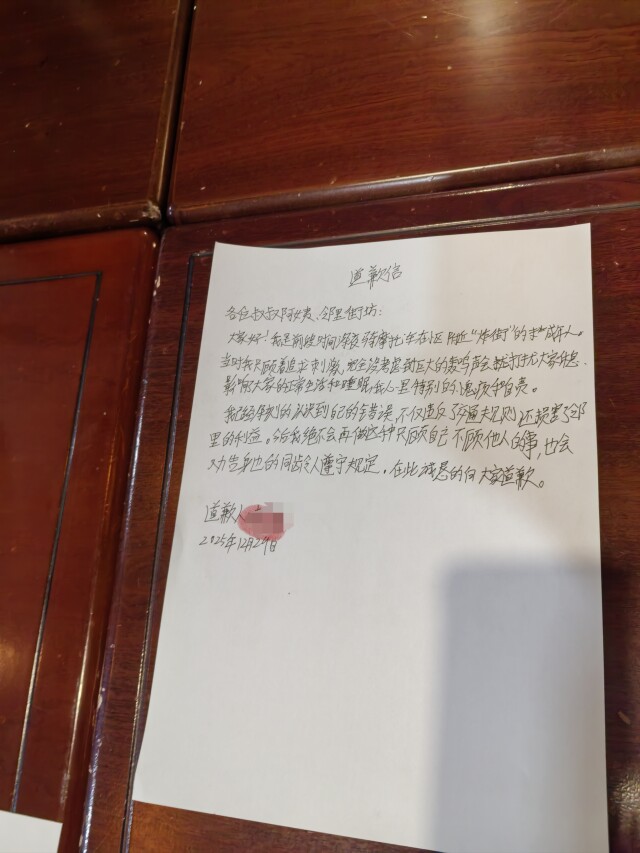 道歉信
各位叔叔阿姨、邻里街坊:
大家好!我是前段时间深夜骑摩托车在小区附近"炸街"的未成年人。
当时我只顾着追求刺激,完全没考虑到巨大的轰鸣声会打扰大家休息.
影响大家的正常生活和睡眠,我心里特别的愧疚和自责。
我已经深刻的认识到自己的错误,不仅违反了交通规则还损害了邻
里的利益。今后我绝不会再做这种只顾自己不顾他人的事,也会
劝告身边的同龄人遵守规定。在此诚恳的向大家道歉。
道歉人
2025年12月29日